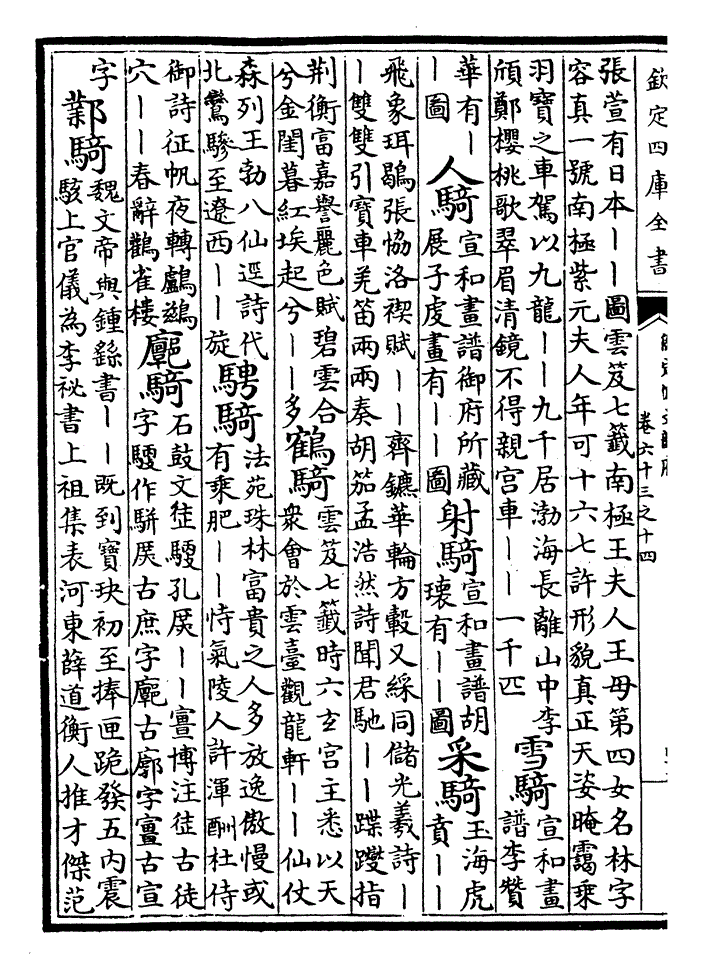 欽定四庫全書
卷六十三之十四
張萱有日本——圖雲笈七籤南極王夫人王母第四女名林字
容真一號南極紫元夫人年可十六七許形貌真正天姿晻靄乘
羽寶之車駕以九龍——九千居渤海長離山中李
頎鄭櫻桃歌翠眉清鏡不得親宮車——一千匹
雪騎
宣和畫
譜李贊
華有—
—圖
人騎
宣和畫譜御府所藏
展子虔畫有——圖
射騎
宣和畫譜胡
瓌有——圖
采騎
玉海虎
賁——
飛象珥鶡張恊洛禊賦——齊鑣華輪方轂又綵同儲光羲詩—
—雙雙引寶車羌笛兩兩奏胡笳孟浩然詩聞君馳——蹀躞指
荆衡富嘉譽麗色賦碧雲合
兮金閨暮紅埃起兮——多
鶴騎
雲笈七籤時六玄宮主悉以天
衆會於雲臺觀龍軒——仙仗
森列王勃八仙逕詩代
北鸞驂至遼西——旋
騁騎
法苑珠林富貴之人多放逸傲慢或
有乘肥——恃氣陵人許渾酬杜侍
御詩征帆夜轉鸕鷀
穴——春辭鸛雀樓
騎
石鼓文徒孔——博汪徒古徒
字作駢古庶字古廓字古宣
字
鄴騎
魏文帝與鍾繇書——既到寶玦初至捧匣跪發五内震
駭上官儀為李祕書上祖集表河東薛道衡人推才傑范